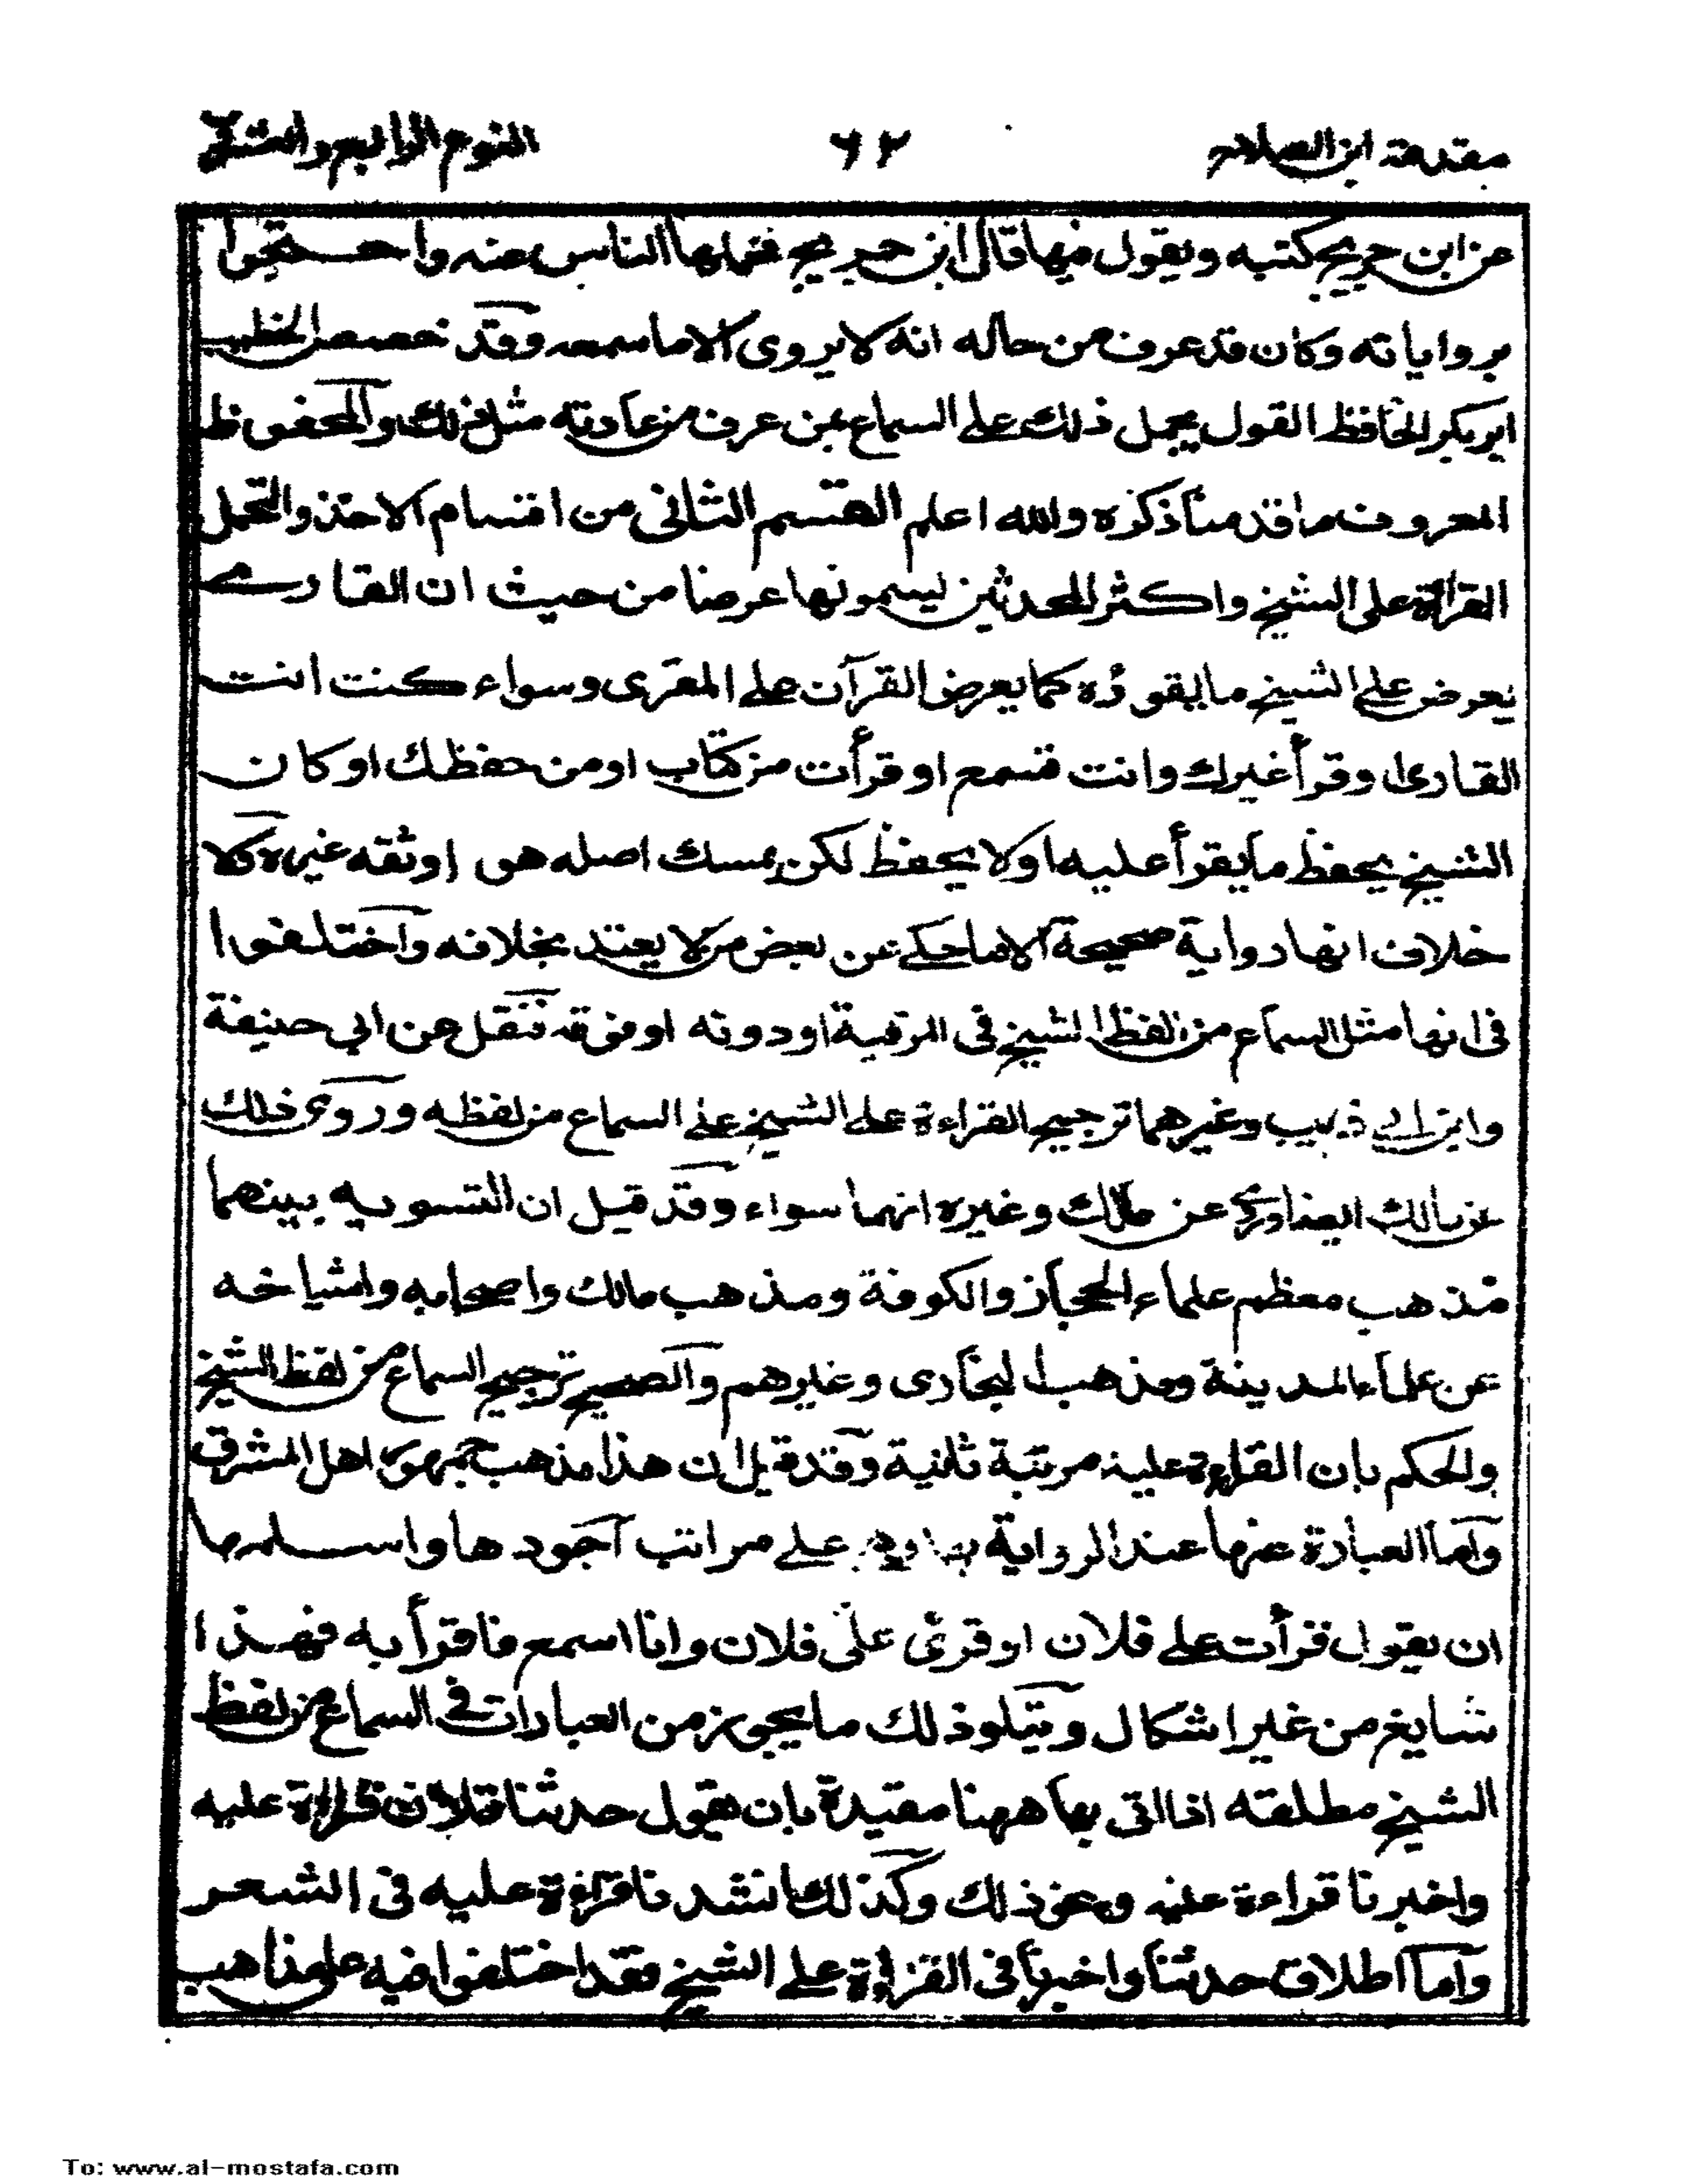 مقدمة ابن الصلاح
٦٢
النوع الرابع والعشر
عن ابن جريج كتبه ويقول فيها قال ابن جريج فحملها الناس عنه واحتجوا
برواياته وكان قد عرف من حاله انه لا يروى الا ما سمعه وقد خصص الخطيب
ابو بكر الحافظ القول بحمل ذلك على السماع بمن عرف من عادته مثل ذلك والمحفوظ
المعروف ما قدمنا ذكره والله اعلم القسم الثانى من اقسام الاخذ والتحمل
القراءة على الشيخ واكثر المحدثين يسمونها عرضا من حيث ان القارى
يعرض على الشيخ ما يقرؤه كما يعرض القرآن على المقرى وسواء كنت انت
القارى او قرأ غيرك وانت تسمع او قرأت من كتاب او من حفظك او كان
الشيخ يحفظ ما يقرأ عليه او لا يحفظ لكن يمسك اصله هو او ثقه غيره ولا
خلاف انها رواية صحيحة الا ما حكى عن بعض من لا يعتد بخلافه واختلفوا
فى انها مثل السماع من لفظ الشيخ فى المرتبة او دونه او فوقه فنقل عن ابي حنيفة
وابن ابي ذيب وغيرهما ترجيح القراءة على الشيخ على السماع من لفظه وروى ذلك
عن مالك ايضا وروى عن مالك وغيره انهما سواء وقد قيل ان التسويه بينهما
مذهب معظم علماء الحجاز والكوفة ومذهب مالك واصحابه واشياخه
من علماء المدينة ومذهب البخارى وغيرهم والصحيح ترجيح السماع من لفظ الشيخ
والحكم بان القراءة عليه مرتبة ثانية وقد قيل ان هذا مذهب جمهور اهل المشرق
واما العبارة عنها عند الرواية بها على مراتب اجودها واسلمها
ان يقول قرأت على فلان او قرئ على فلان وانا اسمع فاقرأ به فهذا
شايع من غير اشكال ويتلو ذلك ما يجوز من العبارات فى السماع من لفظ
الشيخ مطلقه اذا اتى بها ههنا مقيدة بان يقول حدثنا فلان قراءة عليه
واخبرنا قراءة عليه ونحو ذلك وكذلك انشدنا قراءة عليه فى الشعر
واما اطلاق حدثنا واخبرنا فى القراءة على الشيخ فقد اختلفوا فيه على مذاهب
To: www.al-mostafa.com